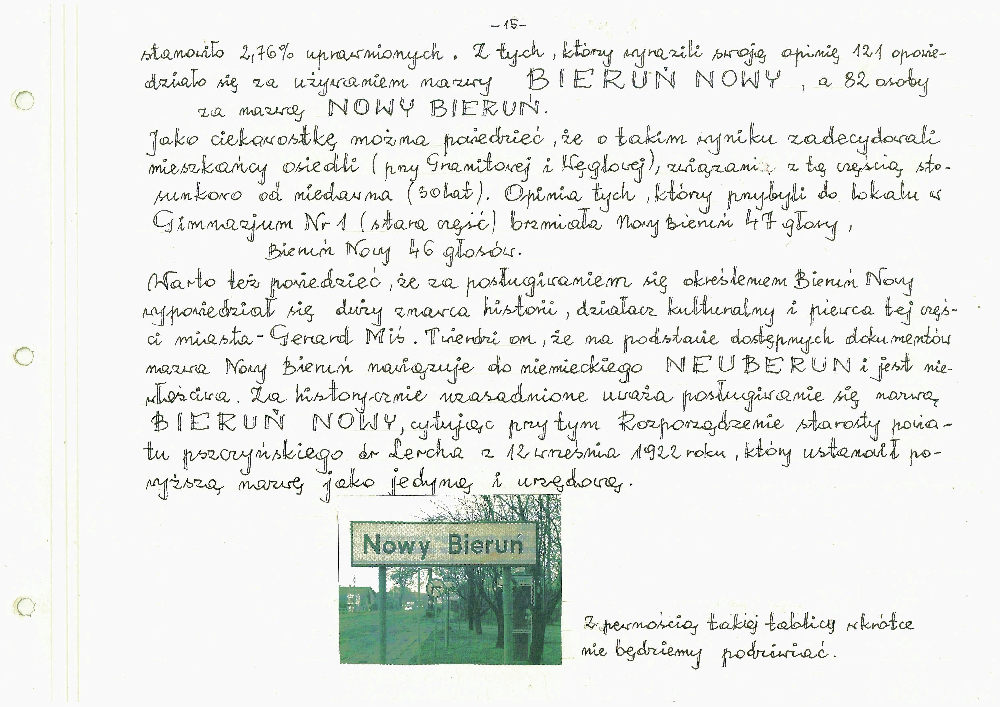 -15-
stanowiło 2,76% uprawnionych. Z tych, którzy wyrazili swoją opinię 121 opowie-
działo się za używaniem nazwy BIERUŃ NOWY, a 82 osoby
za nazwę NOWY BIERUŃ.
Jako ciekawostkę można powiedzieć, że o takim wyniku zadecydowali
mieszkańcy osiedli (przy Granitowej i Węglowej), związani z tą częścią sto-
sunkowo od niedawna (30 lat). Opinia tych, którzy przybyli do lokalu w
Gimnazjum Nr 1 (stara część) brzmiała Nowy Bieruń 47 głosy,
Bieruń Nowy 46 głosów.
Warto też powiedzieć, że za posługiwaniem się określeniem Bieruń Nowy
wypowiedział się duży znawca historii, działacz kulturalny i piewca tej częś-
ci miasta - Gerard Miś. Twierdzi on, że na podstawie dostępnych dokumentów
nazwa Nowy Bieruń nawiązuje do niemieckiego NEUBERUN i jest nie-
właściwa. Za historycznie uzasadnione uważa posługiwanie się nazwą
BIERUŃ NOWY, cytując przy tym Rozporządzenie starosty powia-
tu pszczyńskiego dr Lercha z 12 września 1922 roku, który ustanowił po-
wyższą nazwę jako jedyną i urzędową.
Nowy Bieruń
Z pewnością takiej tablicy wkrótce
nie będziemy podziwiać.